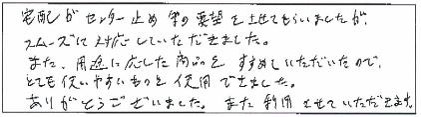 宅配がセンター止め等の要望をさせてもらいましたが、
スムーズに対応していただきました。
また、用途に応じた商品をすすめていただいたので、
とても使いやすいものを使用できました。
ありがとうございました。また利用させていただきます。